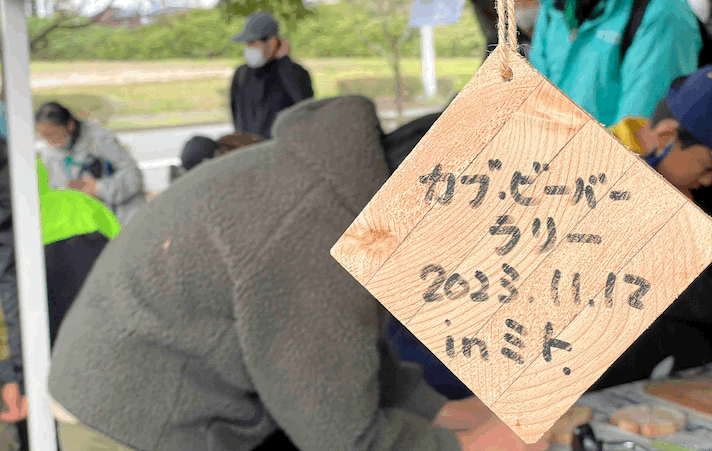 カブ・ビーバー
ラリー
2023.11.12
inミト.